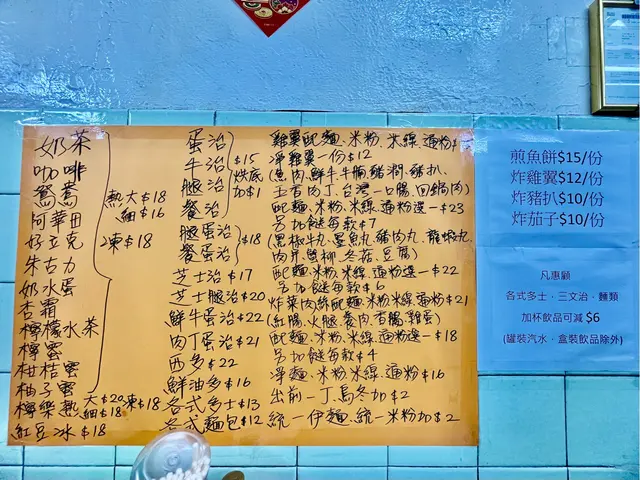 奶茶
咖啡
鴛鴦
阿華田
好立克
朱古力
奶水蛋
杏霜
檸檬水 茶
檸蜜
柑桔蜜
柚子蜜
熱 大$18
細$16
凍$18
檸樂熱 大$20 凍$18
細$18
紅豆冰$18
蛋治
牛治
腿治
餐治
$15
烘底
加$1
腿蛋治
餐蛋治
$18
芝士治$17
芝士腿治$20
鮮牛蛋治$22
肉丁蛋治$21
西多$22
鮮油多$16
各式多士$13
各式麵包$12
雞翼配麵、米粉、米線、通粉$
淨雞翼一份$12
(魚肉、鮮牛、牛腩、豬潤、豬扒、
五香肉丁、台灣一口腸、回鍋肉)
配麵、米粉、米線、通粉選一$23
另加餸每款$7
(黑椒牛丸、墨魚丸、豬肉丸、龍蝦丸
肉片、蟹柳、冬菇、豆腐)
配麵、米粉、米線、通粉選一$22
另加餸每款$6
炸菜肉絲配麵、米粉、米線、通粉$21
(紅腸、火腿、餐肉、香腸、雞蛋)
配麵、米粉、米線、通粉選一$18
另加餸每款$4
淨麵、米粉、米線、通粉$16
出前一丁、烏冬加$2
統一伊麵、統一米粉加$2
煎魚餅$15/份
炸雞翼$12/份
炸豬扒$10/份
炸茄子$10/份
凡惠顧
各式多士、三文治、麵類
加杯飲品可減 $6
(罐裝汽水、盒裝飲品除外)